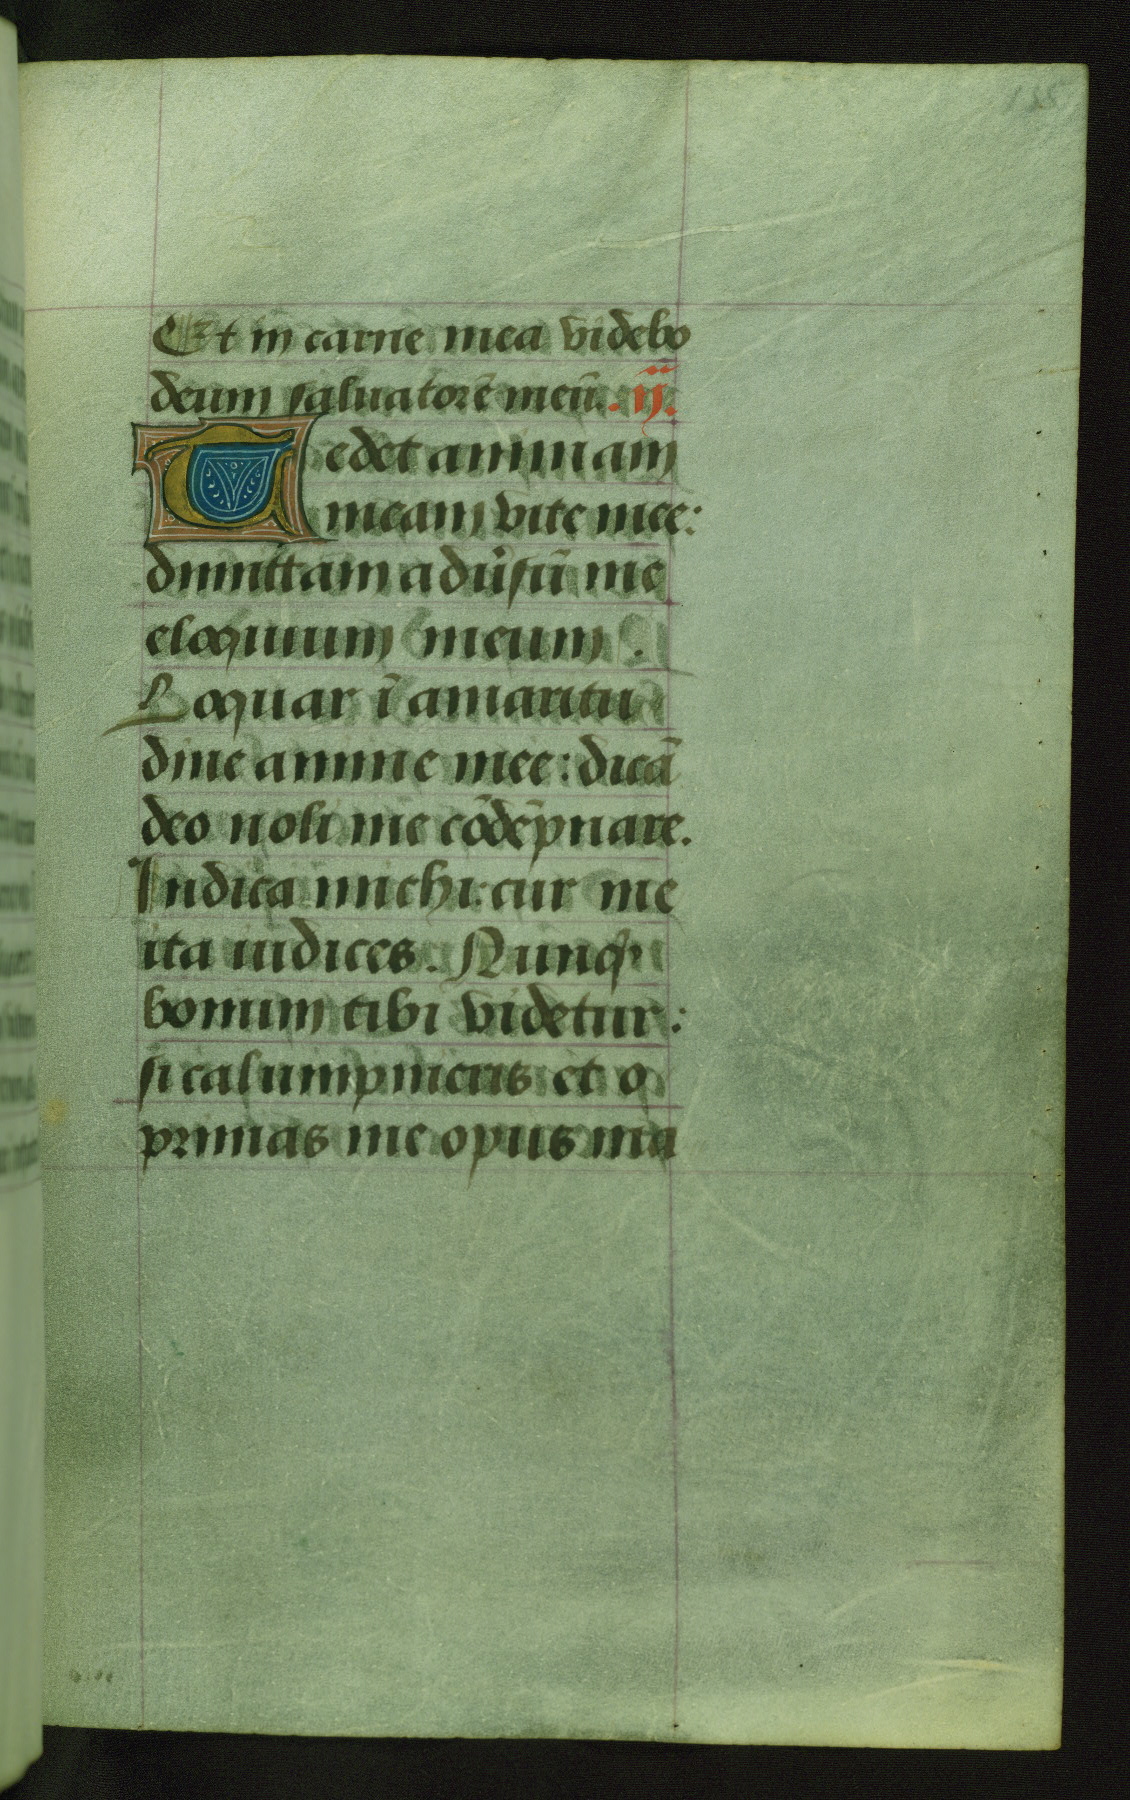 135
Et in carne mea videbo
deum saluatorē meū. ij.
Tedet animam
meam vite mee:
dimittam adūsū me
eloquium meum.
Loquar ī amaritu
dine anime mee: dicā
deo noli me cōdēpnare.
Indica michi: cur me
ita iudices. Nunq̄
bonum tibi videtur:
si calumpnieris et o
primas me opus ma